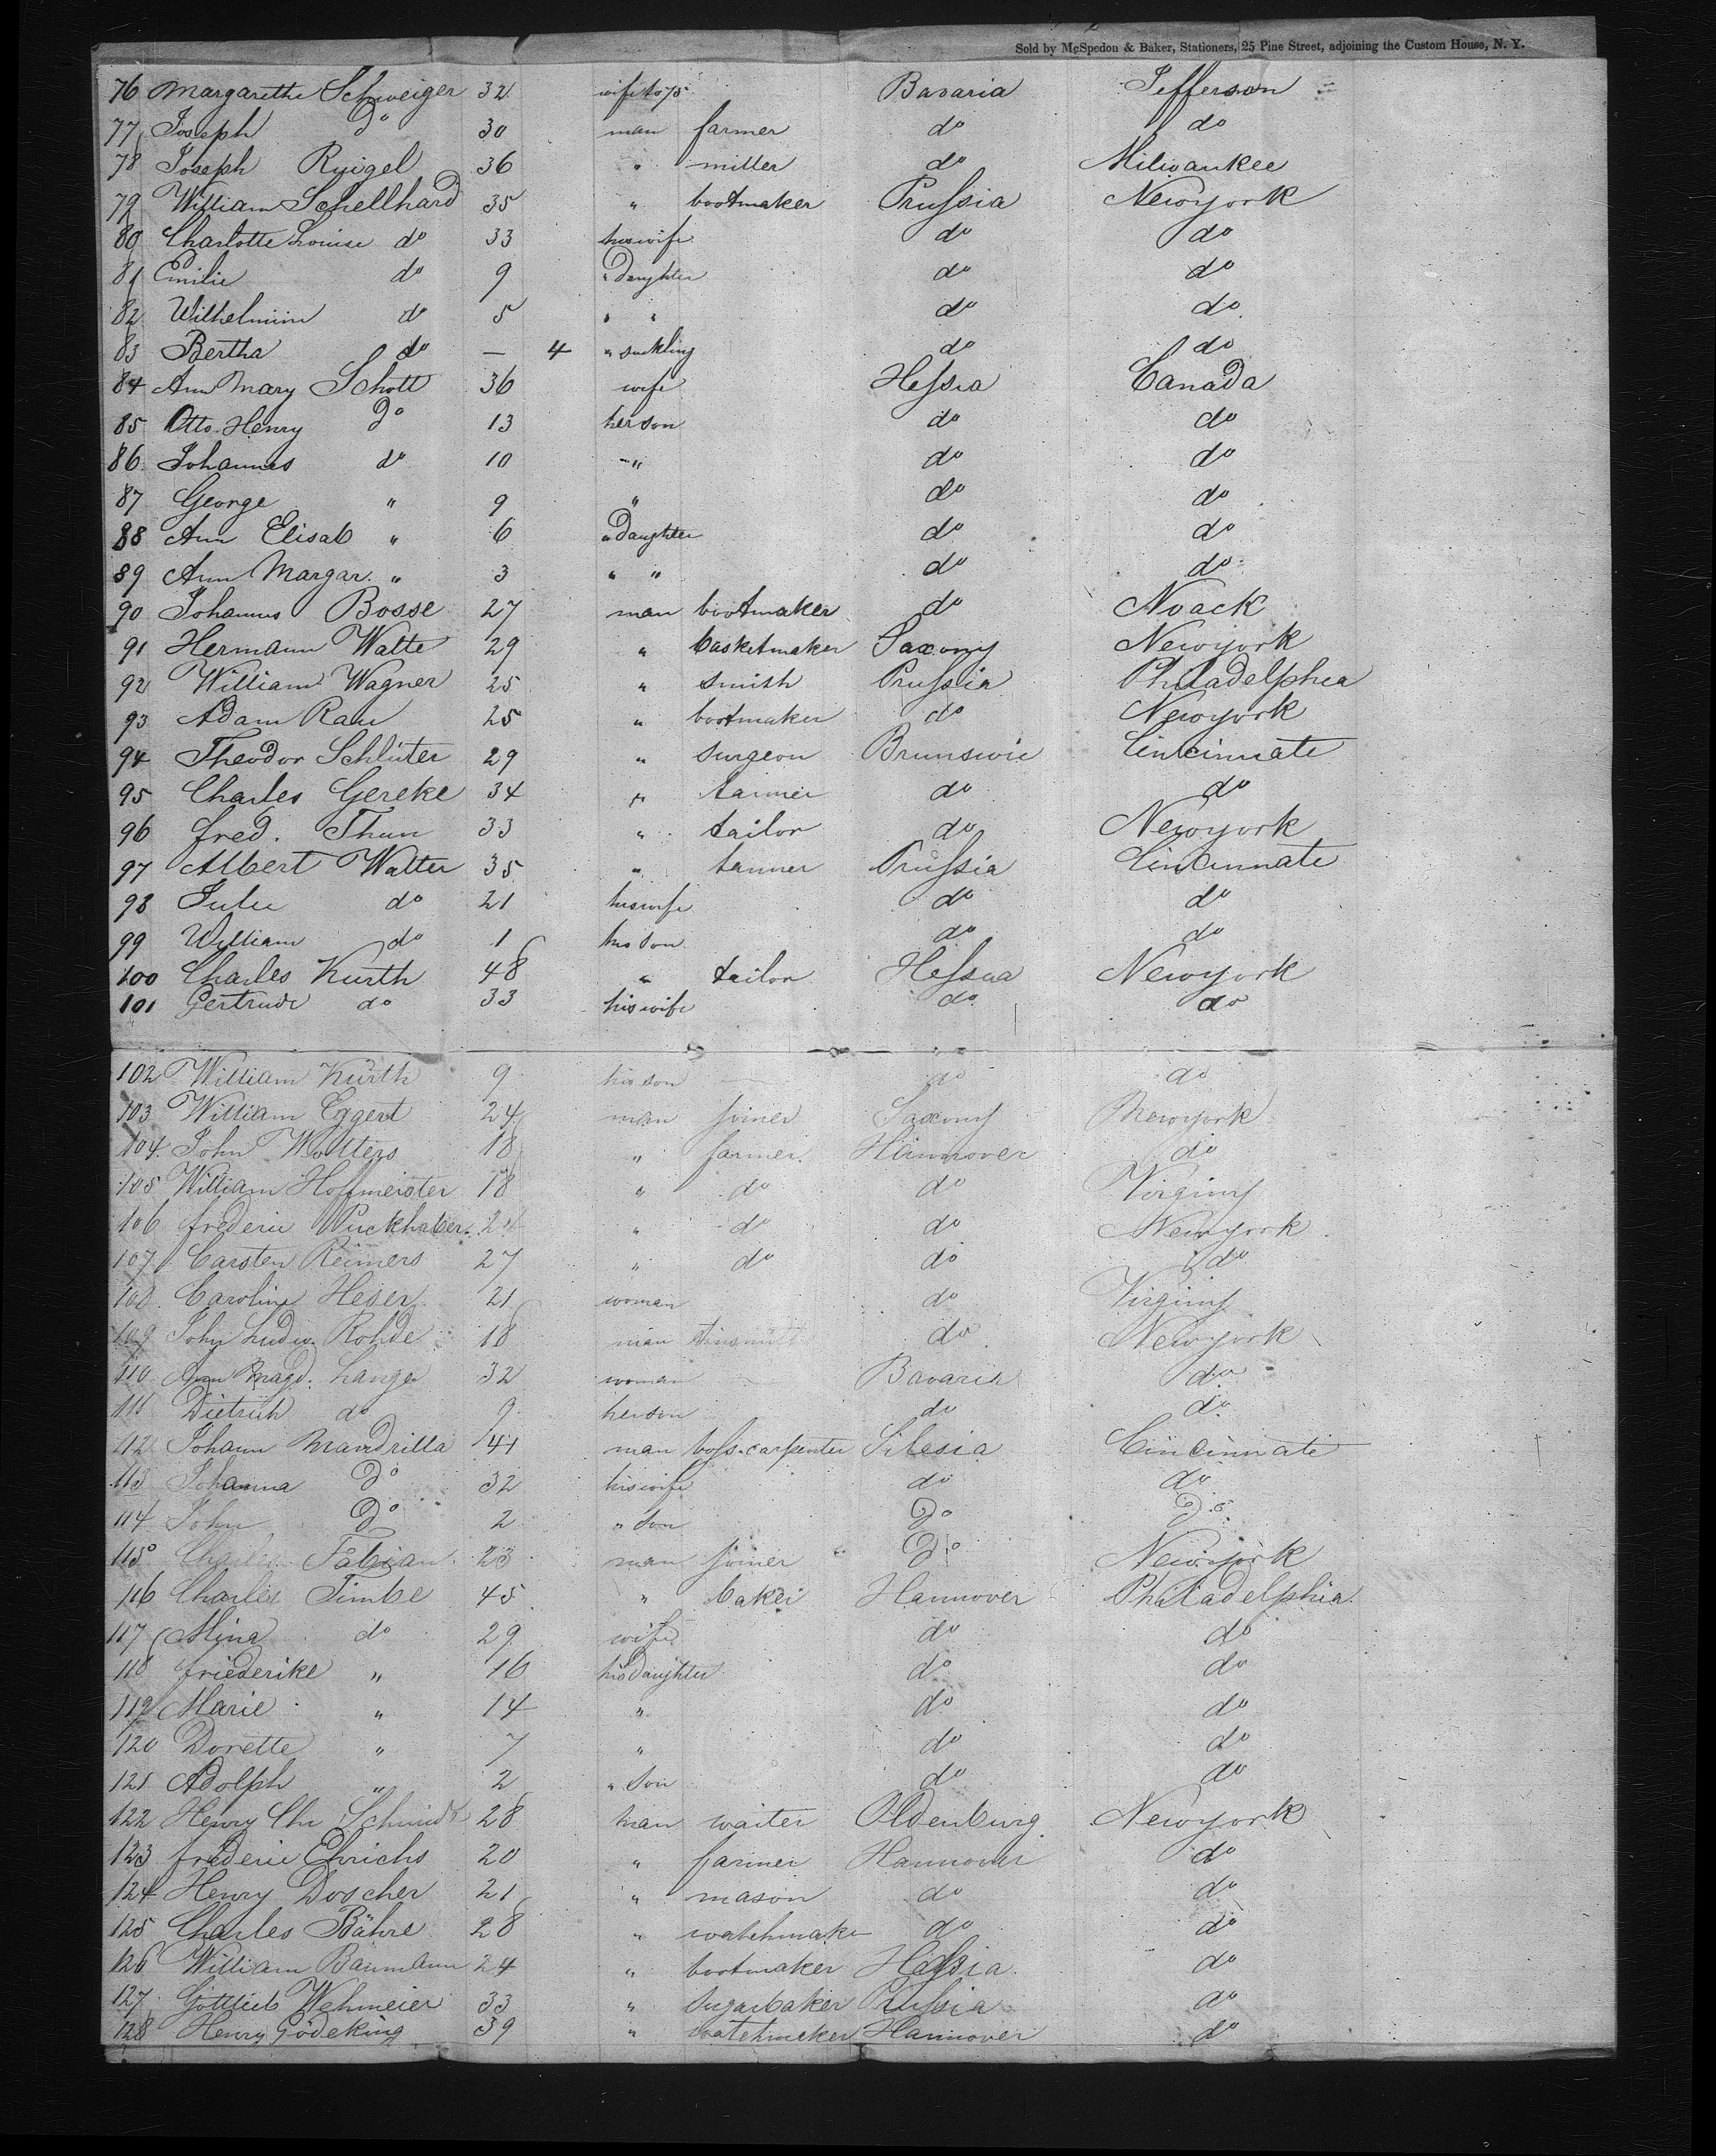 Sold by McSpedon & Baker, Stationers, 25 Pine Street, adjoining the Custom House, N. Y.
76 Margarethe Schweiger 32 wife to 75 Bavaria Jefferson
77 Joseph Do 30 man farmer do do
78 Joseph Ruigel 36 " miller do Milwaukee
79 William Schellhard 35 " bootmaker Prussia Newyork
80 Charlotte Louise do 33 his wife do do
81 Emilie do 9 " Daughter do do
82 Wilhelmine do 5 " " do do
83 Bertha do — 4 " suckling do do
84 Ann Mary Schott 36 wife Hessia Canada
85 Otto Henry Do 13 her son do do
86 Johannes do 10 " do do
87 George " 9 " do do
88 Ann Elisab " 6 " Daughter do do
89 Ann Margar. " 3 " " do do
90 Johannes Bosse 27 man bootmaker do Noack
91 Hermann Walte 29 " basketmaker Saxony Newyork
92 William Wagner 25 " smith Prussia Philadelphia
93 Adam Rau 25 " bootmaker do Newyork
94 Theodor Schlüter 29 " surgeon Brunswic Cincinnate
95 Charles Gereke 34 " tanner do do
96 fred. Thun 33 " tailor do Newyork
97 Albert Walter 35 " tanner Prussia Cincinnate
98 Julie do 21 his wife do do
99 William do 1 his son do do
100 Charles Kurth 48 " tailor Hessia Newyork
101 Gertrude do 33 his wife do do
102 William Kurth 9 his son do do
103 William Eggert 24 man joiner Saxony Newyork
104 John Wolters 18 " farmer Hannover do
105 William Hoffmeister 18 " do do Virginy
106 frederic Puckhaber 24 " do do Newyork
107 Carsten Reimers 27 " do do do
108 Caroline Heser 21 woman do Virginy
109 John Ludw. Rohde 18 man do Newyork
110 Ann Magd. Lange 32 woman Bavaria do
111 Dietrich do 9 her son do do
112 Johann Mandrilla 41 man boss-carpenter Silesia Cincinnate
113 Johanna Do 32 his wife do do
114 John Do 2 " son Do Do
115 Charles Fabian 23 man joiner Do Newyork
116 Charles Timbe 45 " baker Hannover Philadelphia
117 Mina do 29 wife do do
118 friederike " 16 his daughter do do
119 Marie " 14 " do do
120 Dorette " 7 " do do
121 Adolph " 2 " son do do
122 Henry Chr Schmidt 28 man waiter Oldenburg Newyork
123 frederic Ehrichs 20 " farmer Hannover do
124 Henry Doscher 21 " mason do do
125 Charles Bähre 28 " watchmake do do
126 William Baumann 24 " bootmaker Hessia do
127 Gottlieb Wehmeier 33 " sugarbaker Prussia do
128 Henry Gödeking 39 " watchmaker Hannover do